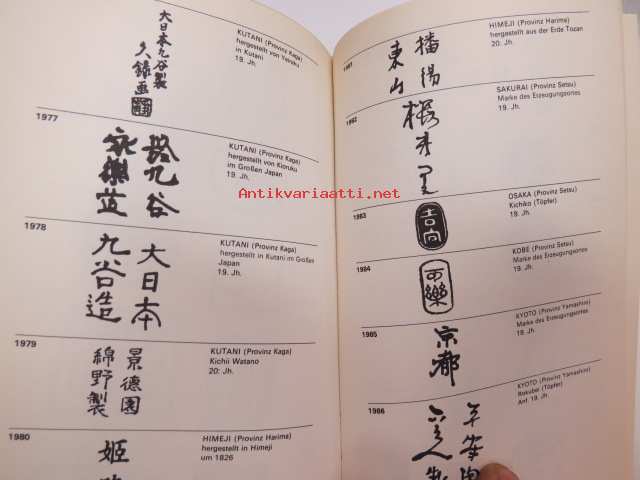 大日本九谷製
久録画
KUTANI (Provinz Kaga)
hergestellt von Kyuroku
in Kutani
19. Jh.
1977
谷
KUTANI (Provinz Kaga)
hergestellt von Kioruku
im Großen Japan
19. Jh.
1978
大日本
九谷造
KUTANI (Provinz Kaga)
hergestellt in Kutani im Großen
Japan
19. Jh.
1979
景德園
綿野製
KUTANI (Provinz Kaga)
Kichii Watano
20: Jh.
1980
姫
HIMEJI (Provinz Harima)
hergestellt in Himeji
um 1826
1981
播陽
東山
HIMEJI (Provinz Harima)
hergestellt aus der Erde Tozan
20. Jh.
1982
SAKURAI (Provinz Setsu)
Marke des Erzeugungsortes
19. Jh.
1983
吉向
OSAKA (Provinz Setsu)
Kichiko (Töpfer)
19. Jh.
1984
KOBE (Provinz Setsu)
Marke des Erzeugungsortes
19. Jh.
1985
京都
KYOTO (Provinz Yamashiro)
Marke des Erzeugungsortes
19. Jh.
1986
平安
KYOTO (Provinz Yamashiro)
Rokubei (Töpfer)
Anf. 19. Jh.
Antikvariaatti.net